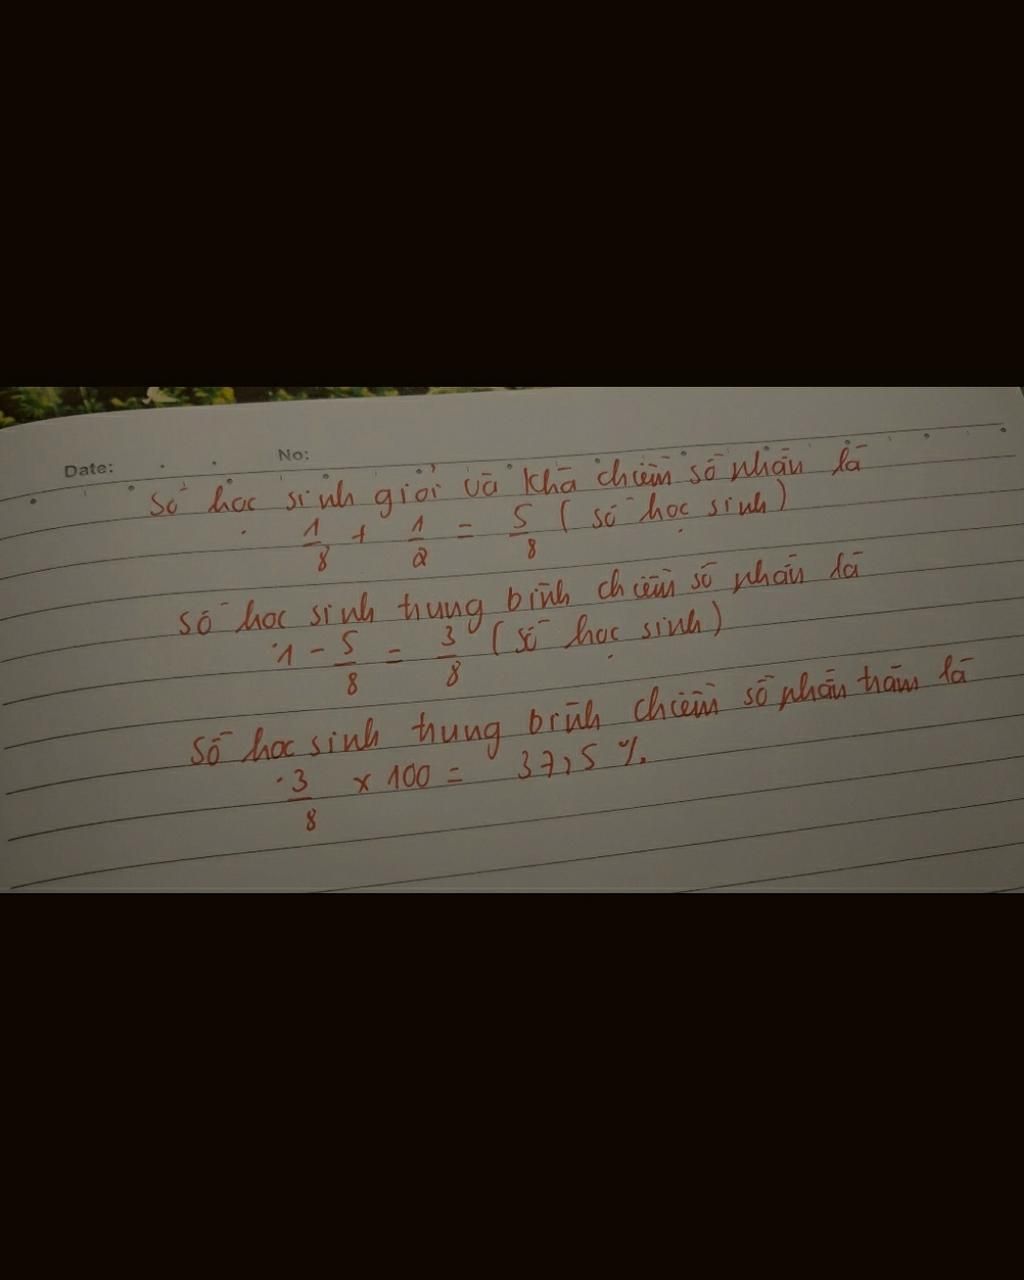 Date: No:
Số học sinh giỏi và khá chiếm số phần là
1/8 + 1/2 = 5/8 ( số học sinh )
Số học sinh trung bình chiếm số phần là
1 - 5/8 = 3/8 ( số học sinh )
Số học sinh trung bình chiếm số phần trăm là
3/8 x 100 = 37,5 %